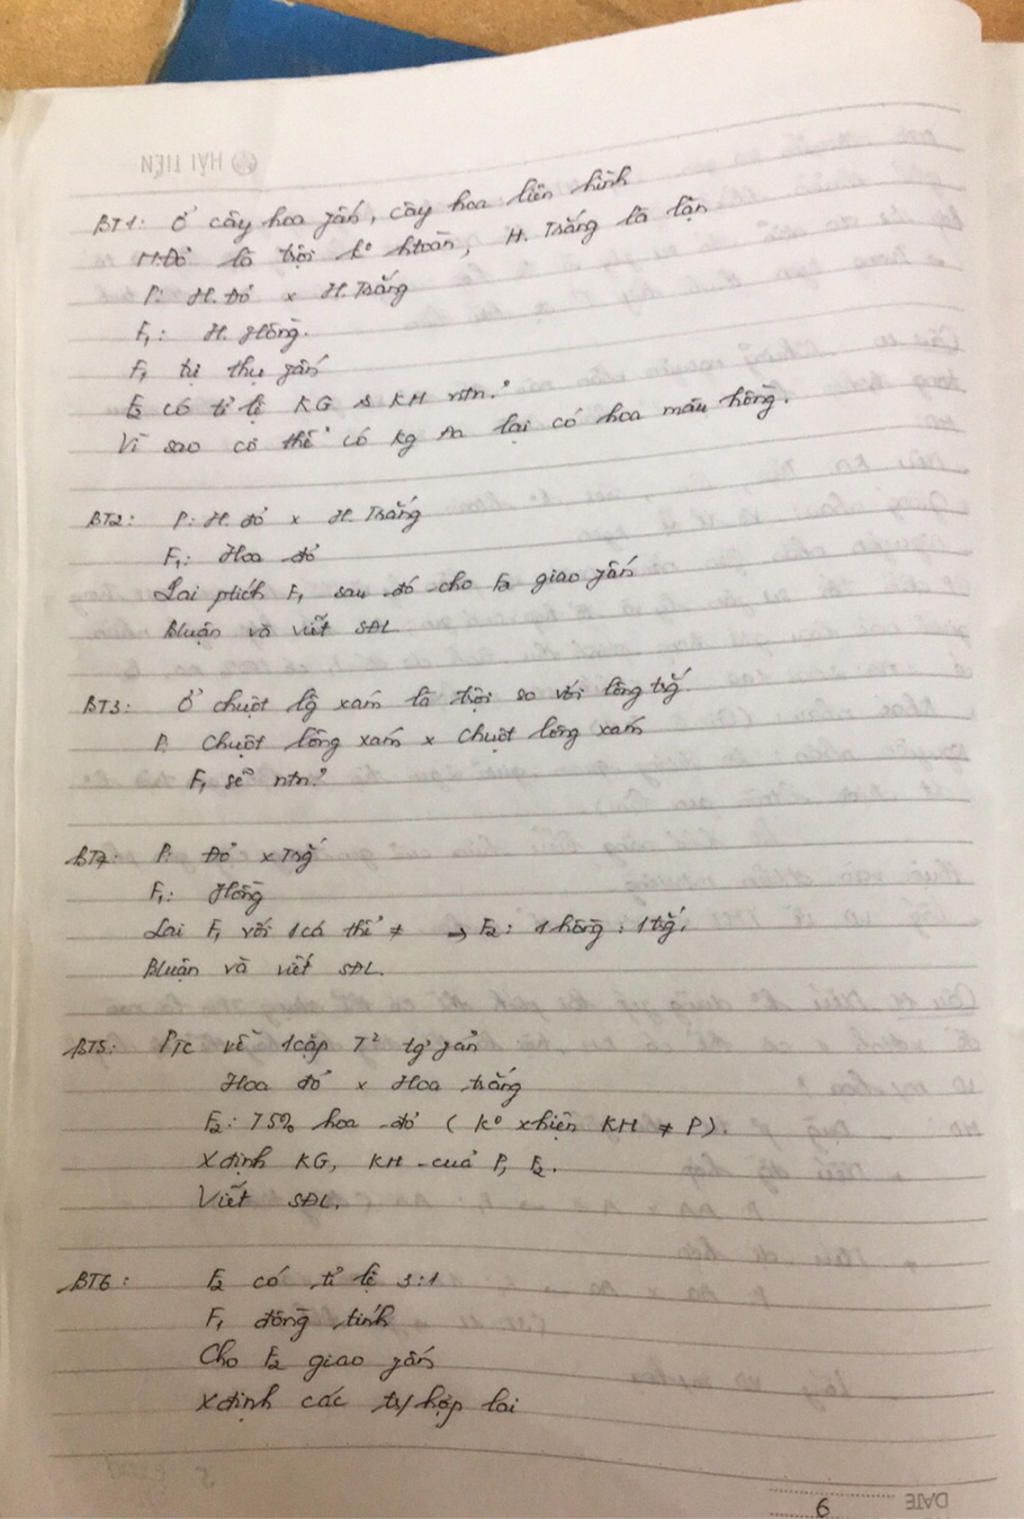 BT1: Ở cây hoa phấn, cây hoa liên hình
H.Đỏ là trội k° htoàn, H. Trắng là lặn
P: H. Đỏ x H. Trắng
F1: H. Hồng.
F1 tự thụ phấn
F2 có tỉ lệ KG & KH ntn?
Vì sao cơ thể có kg Aa lại có hoa màu hồng.
BT2: P: H. đỏ x H. Trắng
F1: Hoa đỏ
Lai ptích F1 sau đó cho F2 giao phấn
Bluận và viết SĐL
BT3: Ở chuột lg xám là trội so với lông trắg
P. Chuột lông xám x Chuột lông xám
F1 sẽ ntn?
P: Đỏ x Trắg
F1: Hồng
Lai F1 với 1 cá thể ≠ → F2: 1 hồng : 1 trắg.
Bluận và viết SĐL.
BT5: PTC về 1 cặp T² tg phản
Hoa đỏ x Hoa trắng
F2: 75% hoa đỏ ( k° xhiện KH ≠ P).
Xđịnh KG, KH của P, F2.
Viết SĐL.
BT6: F2 có tỉ lệ 3:1
F1 đồng tính
Cho F2 giao phấn
Xđịnh các hợp lai
HẢI TIẾN
DATE
6